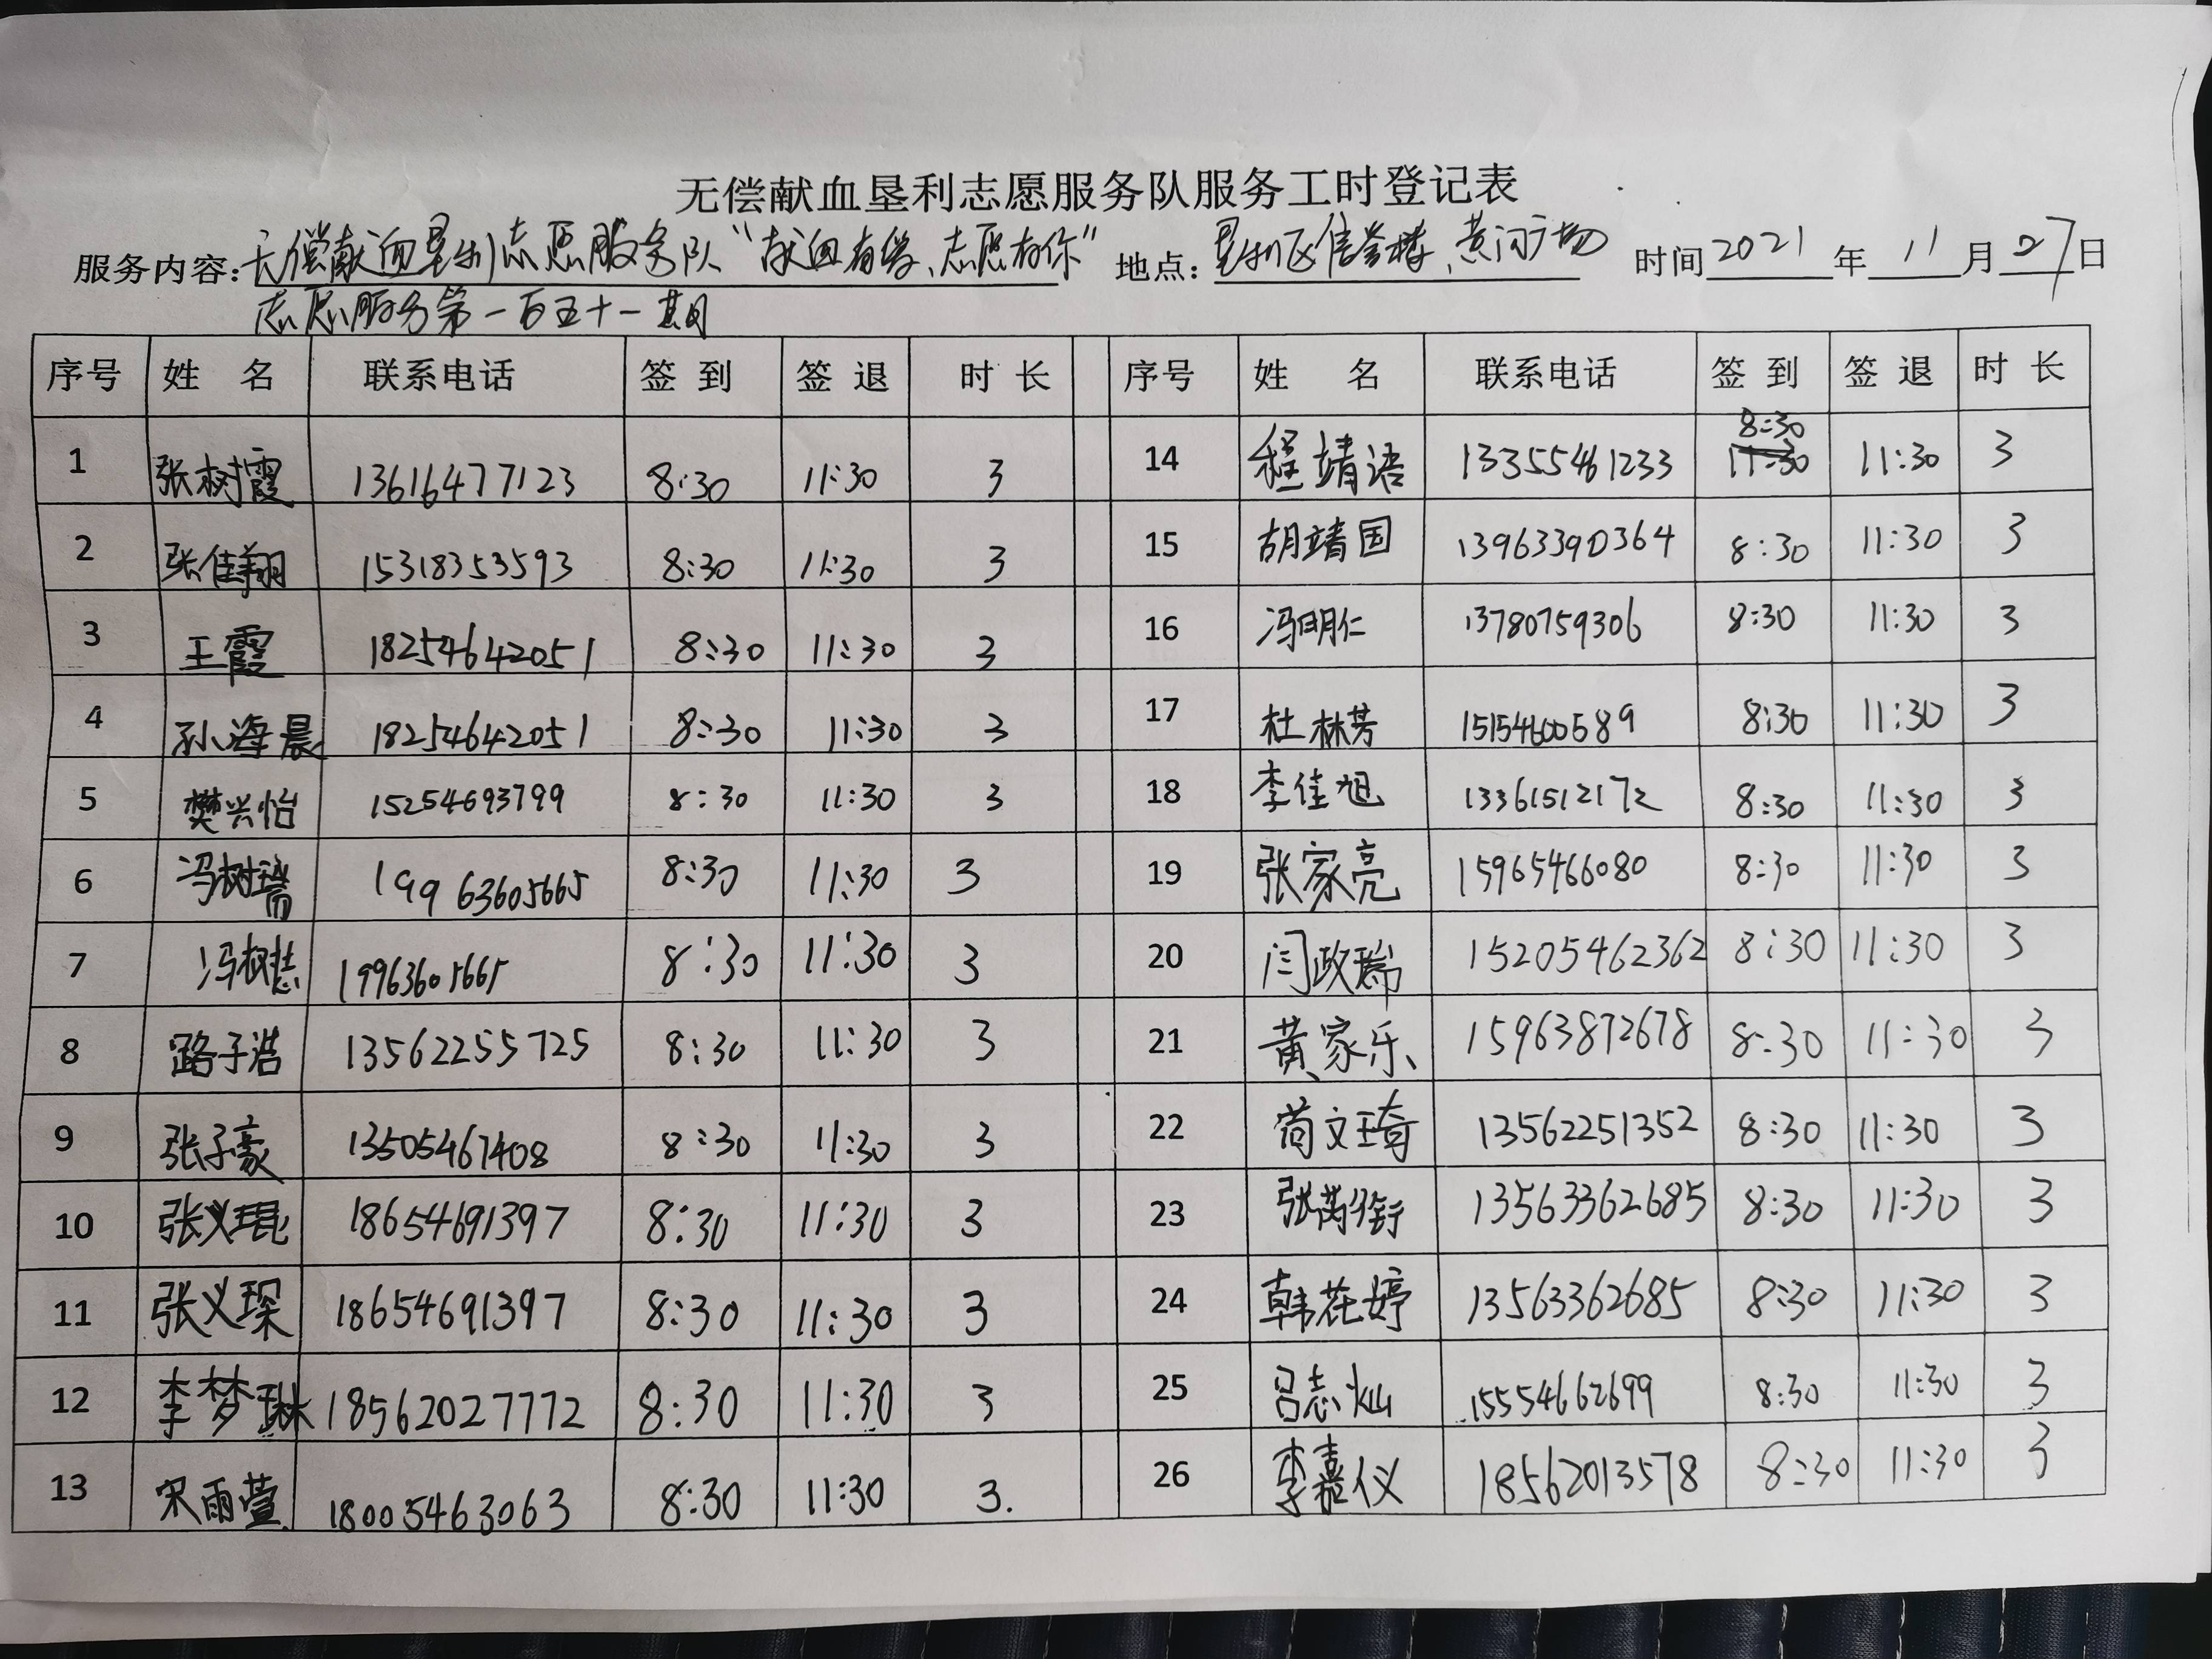 无偿献血垦利志愿服务队服务工时登记表
服务内容:无偿献血垦利志愿服务队“献血有爱、志愿有你” 地点:垦利区信誉楼、黄河广场 时间 2021 年 11 月 27 日
志愿服务第一百五十一期
序号 姓 名 联系电话 签 到 签 退 时 长 序号 姓 名 联系电话 签 到 签 退 时 长
1 张树霞 13616477123 8:30 11:30 3 14 程靖语 13355461233 8:30 11:30 11:30 3
2 张佳翔 15318353593 8:30 11:30 3 15 胡靖国 13963390364 8:30 11:30 3
3 王霞 18254642051 8:30 11:30 3 16 冯明仁 13780759306 8:30 11:30 3
4 孙海晨 18254642051 8:30 11:30 3 17 杜林芳 15154600589 8:30 11:30 3
5 樊兴怡 15254693799 8:30 11:30 3 18 李佳旭 13361512172 8:30 11:30 3
6 冯树瑞 19963605665 8:30 11:30 3 19 张家亮 15965466080 8:30 11:30 3
7 冯树慧 19963605665 8:30 11:30 3 20 闫政瑞 15205462362 8:30 11:30 3
8 路子浩 13562255725 8:30 11:30 3 21 黄家乐 15963872678 8:30 11:30 3
9 张子豪 13505467408 8:30 11:30 3 22 苟文琦 13562251352 8:30 11:30 3
10 张义琨 18654691397 8:30 11:30 3 23 张 13563362685 8:30 11:30 3
11 张义琛 18654691397 8:30 11:30 3 24 韩在婷 13563362685 8:30 11:30 3
12 李梦琳 18562027772 8:30 11:30 3 25 吕志灿 15554662699 8:30 11:30 3
13 宋雨萱 18005463063 8:30 11:30 3. 26 李嘉仪 18562013578 8:30 11:30 3